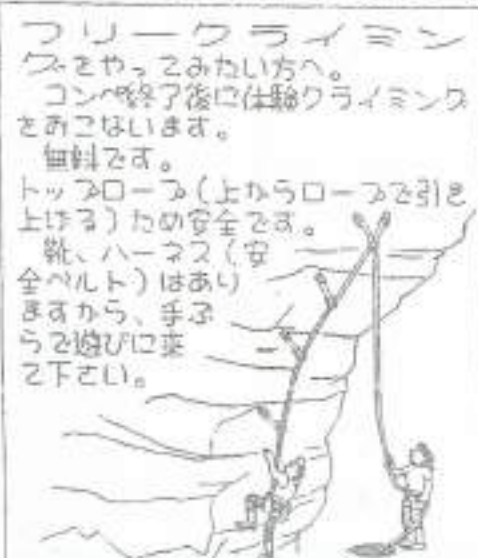 フリークライミン
グをやってみたい方へ。
コンペ終了後に体験クライミング
をおこないます。
無料です。
トップロープ(上からロープで引き
上げる)ため安全です。
靴、ハーネス(安
全ベルト)はあり
ますから、手ぶ
らで遊びに来
て下さい。